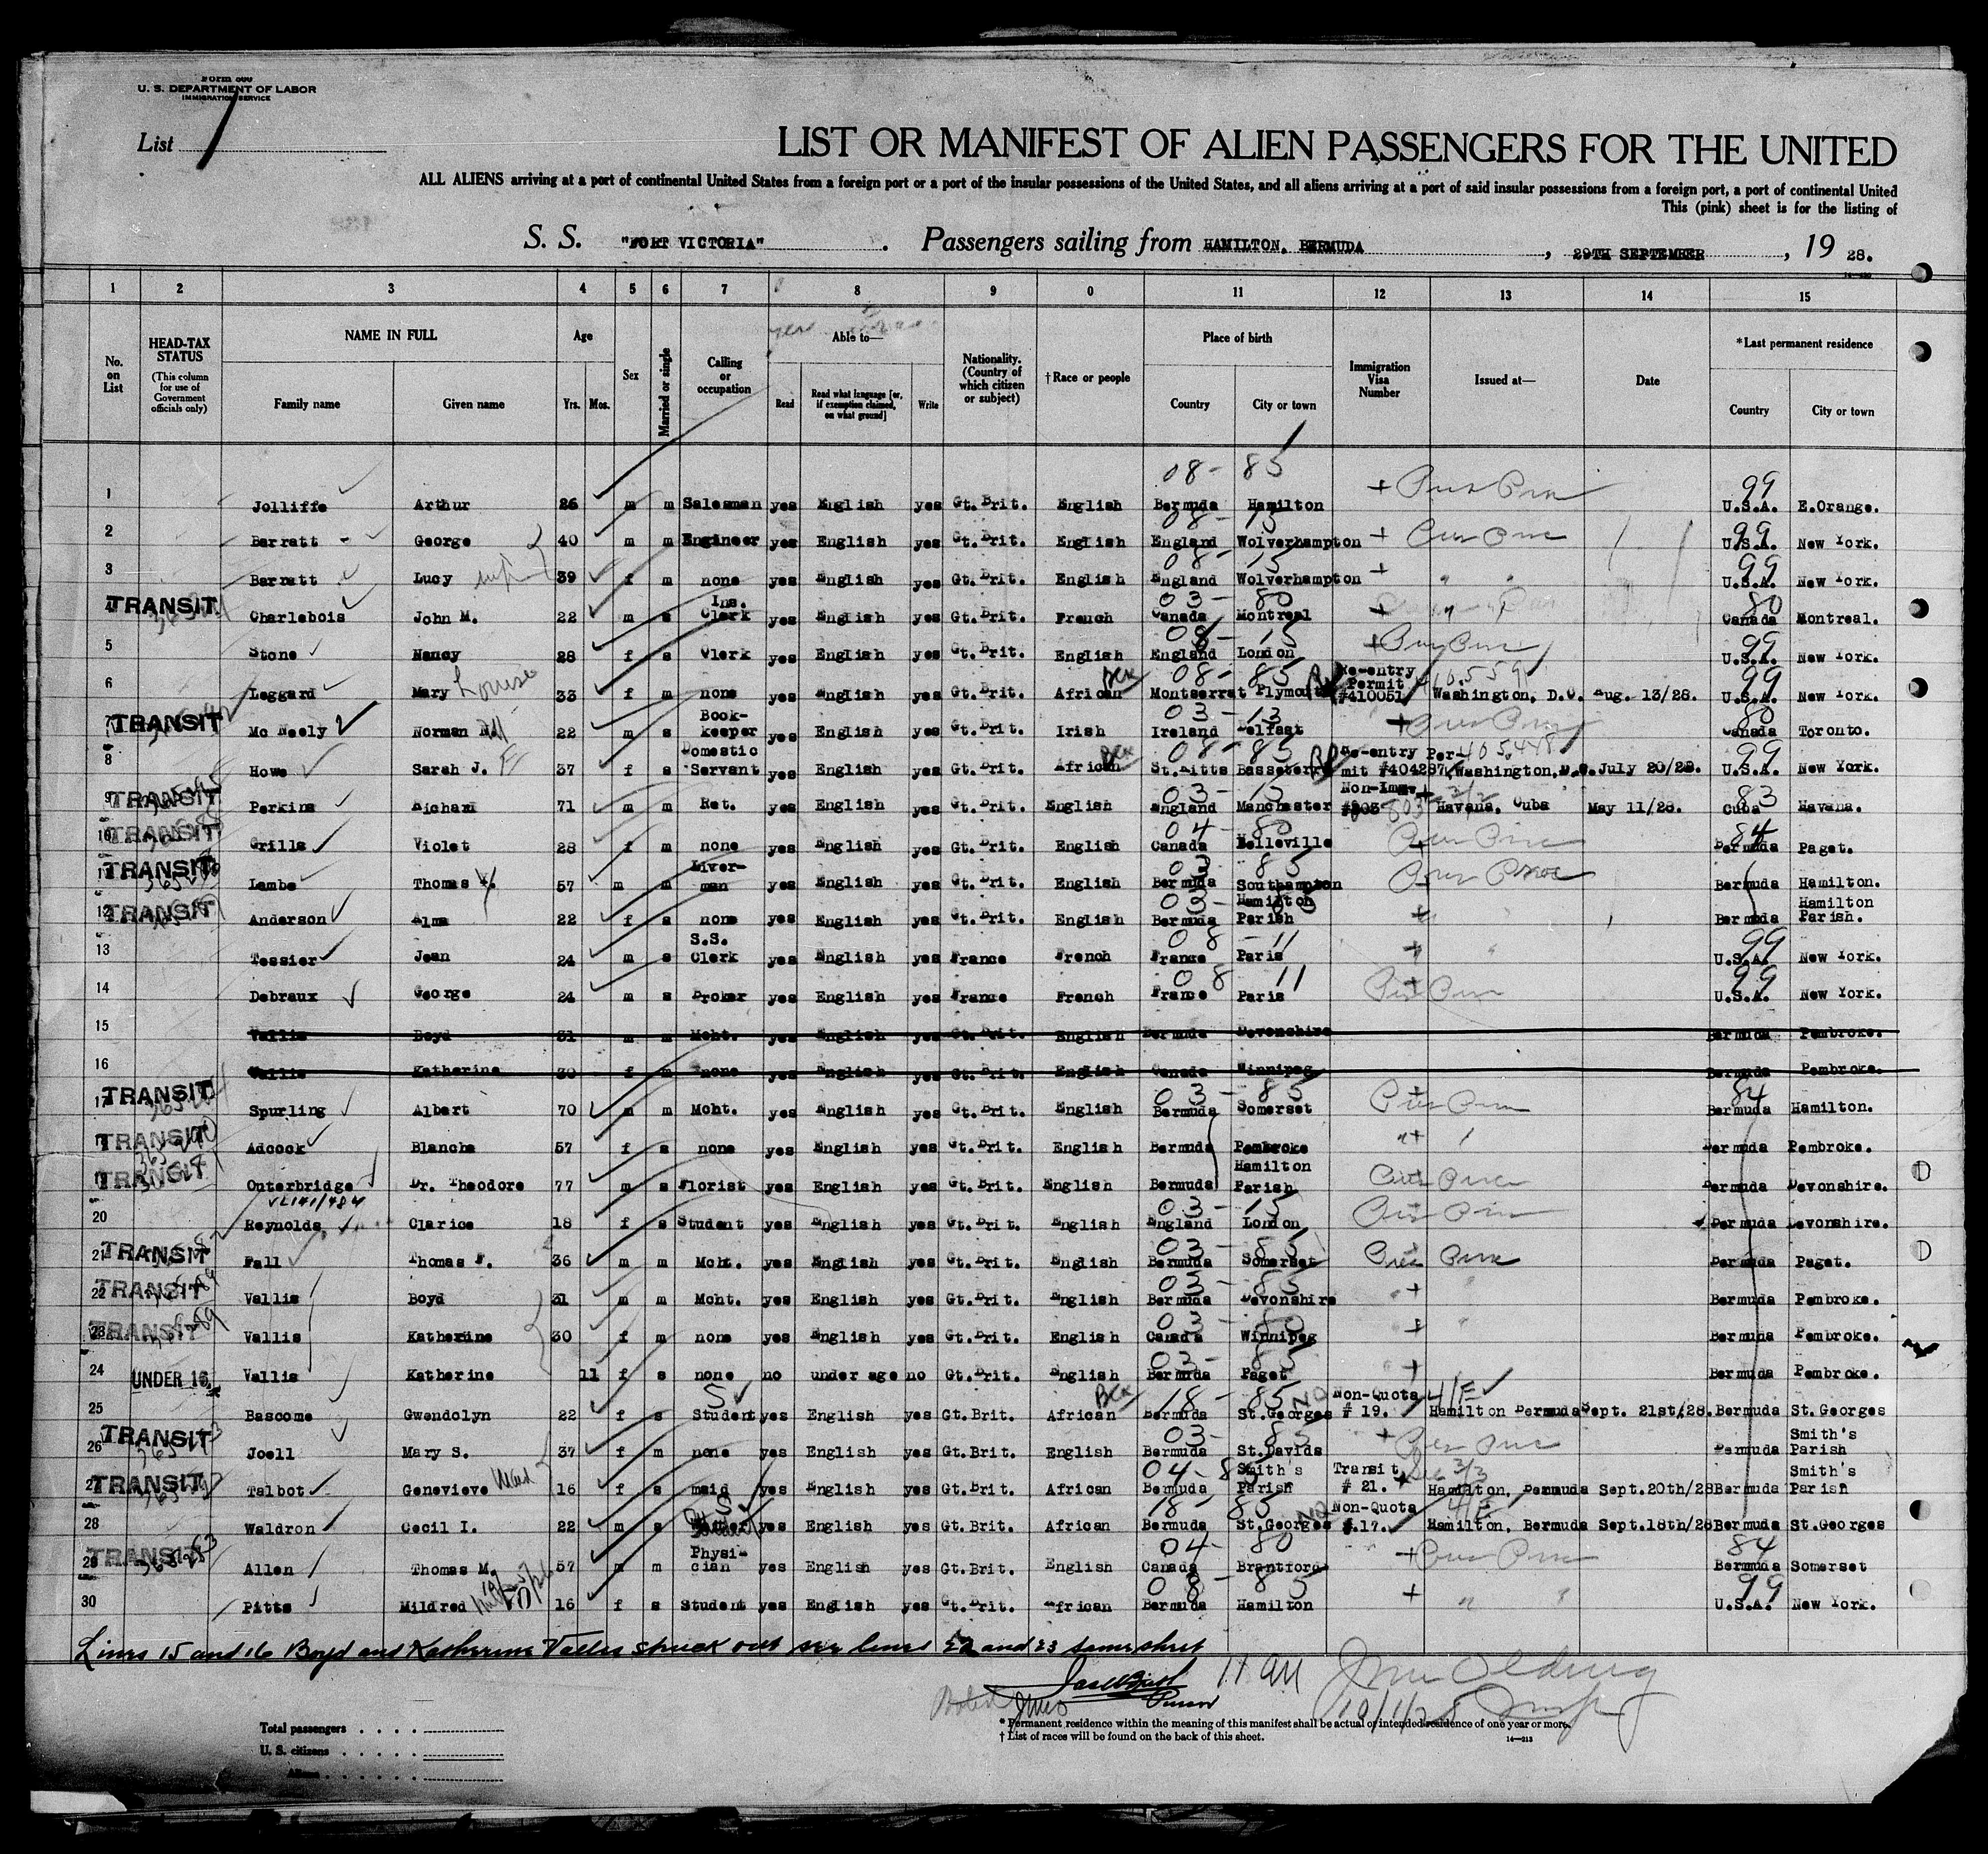 Form 500
U. S. DEPARTMENT OF LABOR
IMMIGRATION SERVICE
List 1
LIST OR MANIFEST OF ALIEN PASSENGERS FOR THE UNITED
ALL ALIENS arriving at a port of continental United States from a foreign port or a port of the insular possessions of the United States, and all aliens arriving at a port of said insular possessions from a foreign port, a port of continental United
This (pink) sheet is for the listing of
S. S. "FORT VICTORIA" . Passengers sailing from HAMILTON. BERMUDA , 29TH SEPTEMBER , 19 28.
1 2 3 4 5 6 7 8 9 0 11 12 13 14 15
No. on List
HEAD-TAX STATUS (This column for use of Government officials only)
NAME IN FULL Family name Given name
Age Yrs. Mos.
Sex
Married or single
Calling or occupation
Able to— Read Read what language [or, if exemption claimed, on what ground] Write
Nationality. (Country of which citizen or subject)
†Race or people
Place of birth Country City or town
Immigration Visa Number
Issued at—
Date
*Last permanent residence Country City or town
08- 85 99
1 Jolliffe Arthur 26 m m Salesman yes English yes Gt.Brit. English Bermuda Hamilton U.S.A. E.Orange.
08- 15 99
2 Barratt George 40 m m Engineer yes English yes Gt.Brit. English England Wolverhampton U.S.A. New York.
08- 15 99
3 Barratt Lucy wife 39 f m none yes English yes Gt.Brit. English England Wolverhampton U.S.A. New York.
03- 80 80
TRANSIT 4 Charlebois John M. 22 m s Ins. Clerk yes English yes Gt.Brit. French Canada Montreal Canada Montreal.
08- 15 99
5 Stone Nancy 28 f s Clerk yes English yes Gt.Brit. English England London U.S.A. New York.
08- 85 99
6 Leggard Mary Louise 33 f m none yes English yes Gt.Brit. African Montserrat Plymouth Re-entry Permit #410051 Washington, D.C. Aug. 13/28. U.S.A. New York.
03- 13 80
TRANSIT 7 Mc Neely Norman 22 m s Book-keeper yes English yes Gt.Brit. Irish Ireland Belfast Canada Toronto.
08- 85 405448 99
8 Howe Sarah J. 37 f s Domestic Servant yes English yes Gt.Brit. African St.Kitts Basseterre Re-entry Per-mit #404287 Washington,D.C. July 20/28. U.S.A. New York.
03- 15 3/2 83
TRANSIT 9 Perkins Richard 71 m m Ret. yes English yes Gt.Brit. English England Manchester Non-Imm. #803 Havana, Cuba May 11/28. Cuba Havana.
04- 80 84
TRANSIT 10 Grills Violet 28 f m none yes English yes Gt.Brit. English Canada Belleville Bermuda Paget.
03 85
TRANSIT 11 Lambe Thomas W. 57 m m Liver-man yes English yes Gt.Brit. English Bermuda Southampton Bermuda Hamilton.
03- 85
TRANSIT 12 Anderson Alma 22 f s none yes English yes Gt.Brit. English Bermuda Hamilton Parish Bermuda Hamilton Parish.
08 - 11 99
13 Tessier Jean 24 m s S.S. Clerk yes English yes France French France Paris U.S.A. New York.
08 11 99
14 Debraux George 24 m s Broker yes English yes France French France Paris U.S.A. New York.
15 Vallis Boyd 31 m m Mcht. yes English yes Gt.Brit. English Bermuda Devonshire Bermuda Pembroke.
16 Vallis Katherine 30 f m none yes English yes Gt.Brit. English Canada Winnipeg Bermuda Pembroke.
03- 85 84
TRANSIT 17 Spurling Albert 70 m m Mcht. yes English yes Gt.Brit. English Bermuda Somerset Bermuda Hamilton.
TRANSIT Adcock Blanche 57 f s none yes English yes Gt.Brit. English Bermuda Pembroke Bermuda Pembroke.
TRANSIT Outerbridge Dr. Theodore 77 m s Florist yes English yes Gt.Brit. English Bermuda Hamilton Parish Bermuda Devonshire.
03- 15
20 Reynolds Clarice 18 f s Student yes English yes Gt.Brit. English England London Bermuda Devonshire.
03- 85
TRANSIT 21 Fall Thomas F. 36 m m Mcht. yes English yes Gt.Brit. English Bermuda Somerset Bermuda Paget.
03- 85
TRANSIT 22 Vallis Boyd 31 m m Mcht. yes English yes Gt.Brit. English Bermuda Devonshire Bermuda Pembroke.
03- 80
TRANSIT 23 Vallis Katherine 30 f m none yes English yes Gt.Brit. English Canada Winnipeg Bermuda Pembroke.
03- 85
24 UNDER 16 Vallis Katherine 11 f s none no under age no Gt.Brit. English Bermuda Paget Bermuda Pembroke.
S 18- 85 4/E
25 Bascome Gwendolyn 22 f s Student yes English yes Gt.Brit. African Bermuda St.Georges Non-Quota # 19. Hamilton Bermuda Sept. 21st/28. Bermuda St.Georges
03- 85
TRANSIT 26 Joell Mary S. 37 f m none yes English yes Gt.Brit. English Bermuda St.Davids Bermuda Smith's Parish
04- 85 3/3
TRANSIT 27 Talbot Genevieve Maid 16 f s maid yes English yes Gt.Brit. African Bermuda Smith's Parish Transit # 21. Hamilton, Bermuda Sept.20th/28 Bermuda Smith's Parish
S 18- 85 4/E
28 Waldron Cecil I. 22 m s yes English yes Gt.Brit. African Bermuda St.Georges Non-Quota #.17. Hamilton, Bermuda Sept.18th/28 Bermuda St.Georges
04- 80 84
TRANSIT 29 Allen Thomas M. 57 m m Physi-cian yes English yes Gt.Brit. English Canada Brantford Bermuda Somerset
08- 85 99
30 Pitts Mildred 16 f s Student yes English yes Gt.Brit. African Bermuda Hamilton U.S.A. New York.
Lines 15 and 16 Boyd and Katherine Vallis struck out see lines 22 and 23 same sheet
Purser
10/1/28
* Permanent residence within the meaning of this manifest shall be actual or intended residence of one year or more.
† List of races will be found on the back of this sheet.
14—213
Total passengers . . . .
U. S. citizens . . . . .
Aliens . . . . . .